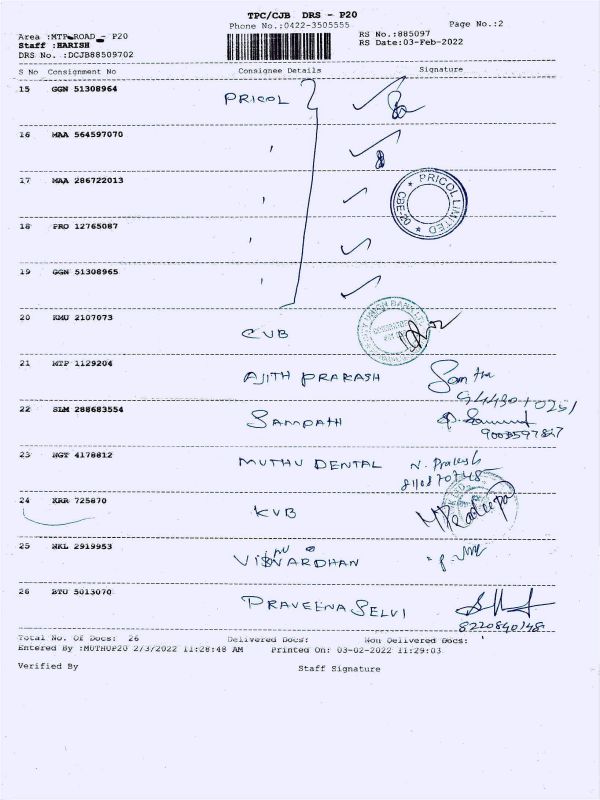 TPC/CJB DRS - P20
Phone No.:0422-3505555
Page No.:2
Area :MTP ROAD - P20
RS No.:885097
Staff :HARISH
RS Date:03-Feb-2022
DRS No. :DCJB88509702
S No Consignment No Consignee Details Signature
15 GGN 51308964 PRICOL
16 MAA 564597070
17 MAA 286722013
PRICOL LIMITED
CBE-20
18 PRO 12765087
19 GGN 51308965
20 KMU 2107073 CUB
UNION BANK
21 MTP 1129204 AJITH PRAKASH
22 SLM 288683554 SAMPATH
9003597827
23 NGT 4178812 MUTHU DENTAL N. Prakash
24 KRR 725870 KVB M Pradeepa
25 NKL 2919953
26 BTU 5013070 PRAVEENA SELVI
8220840148
Total No. Of Docs: 26 Delivered Docs: Non Delivered Docs:
Entered By :MUTHUP20 2/3/2022 11:28:48 AM Printed On: 03-02-2022 11:29:03
Verified By Staff Signature